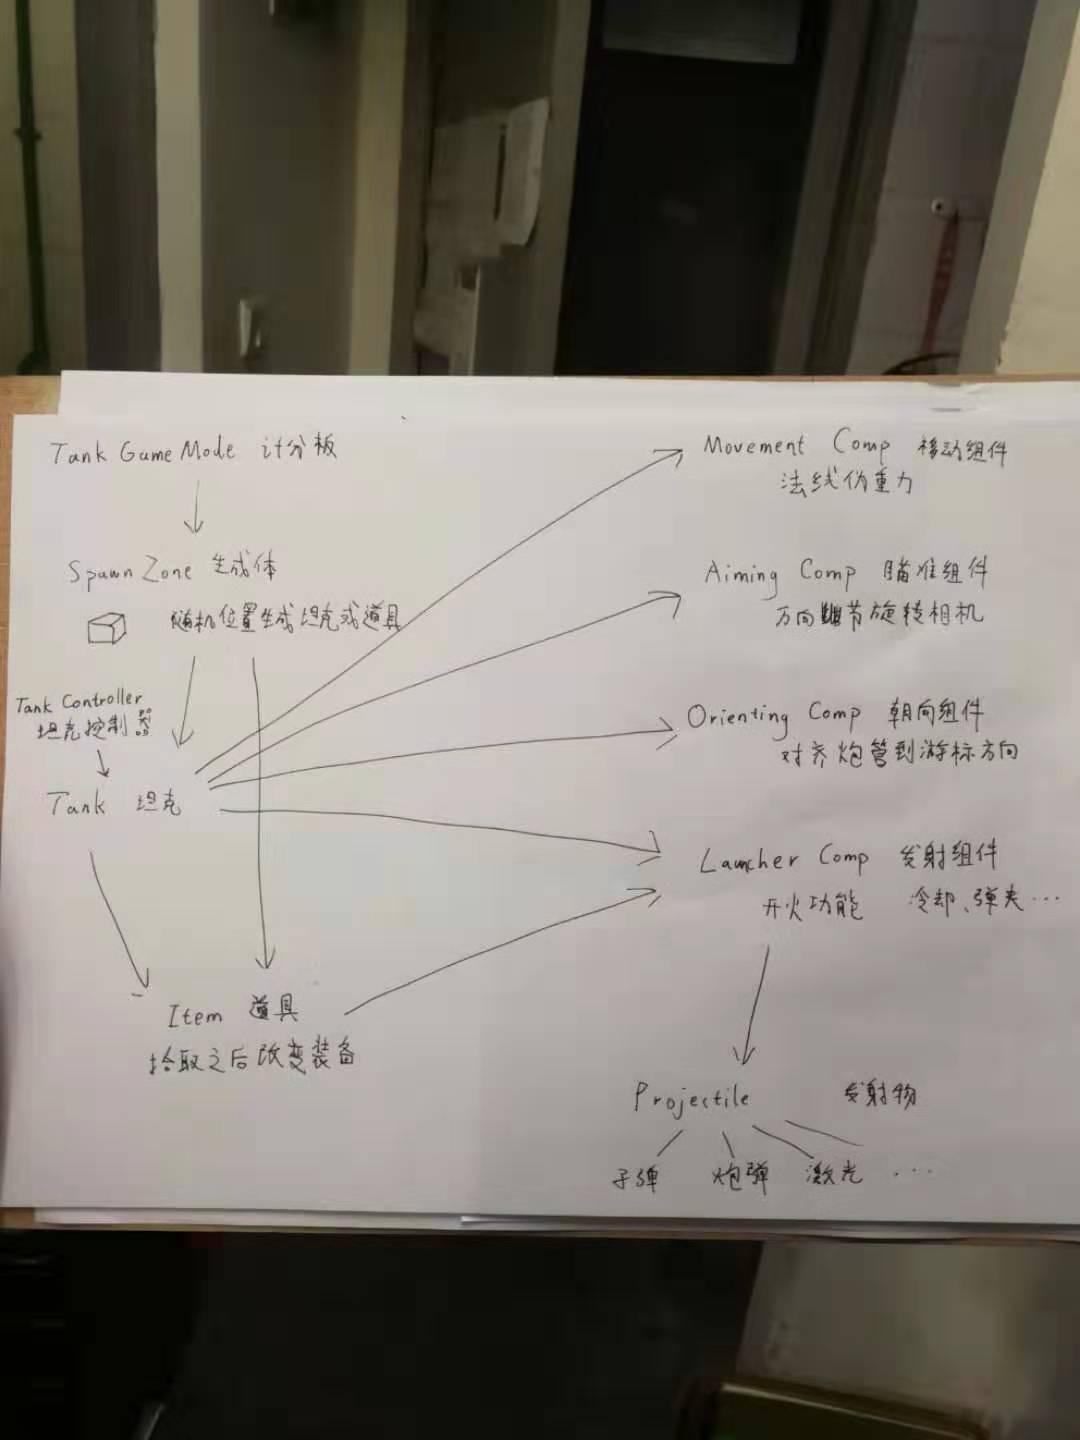 Tank Game Mode 计分板
Spawn Zone 生成体
随机位置生成坦克或道具
Tank Controller
坦克控制器
Tank 坦克
Item 道具
拾取之后改变装备
Movement Comp 移动组件
法线伪重力
Aiming Comp 瞄准组件
万向节旋转相机
Orienting Comp 朝向组件
对齐炮管到游标方向
Launcher Comp 发射组件
开火功能 冷却、弹夹…
Projectile 发射物
子弹 炮弹 激光 …